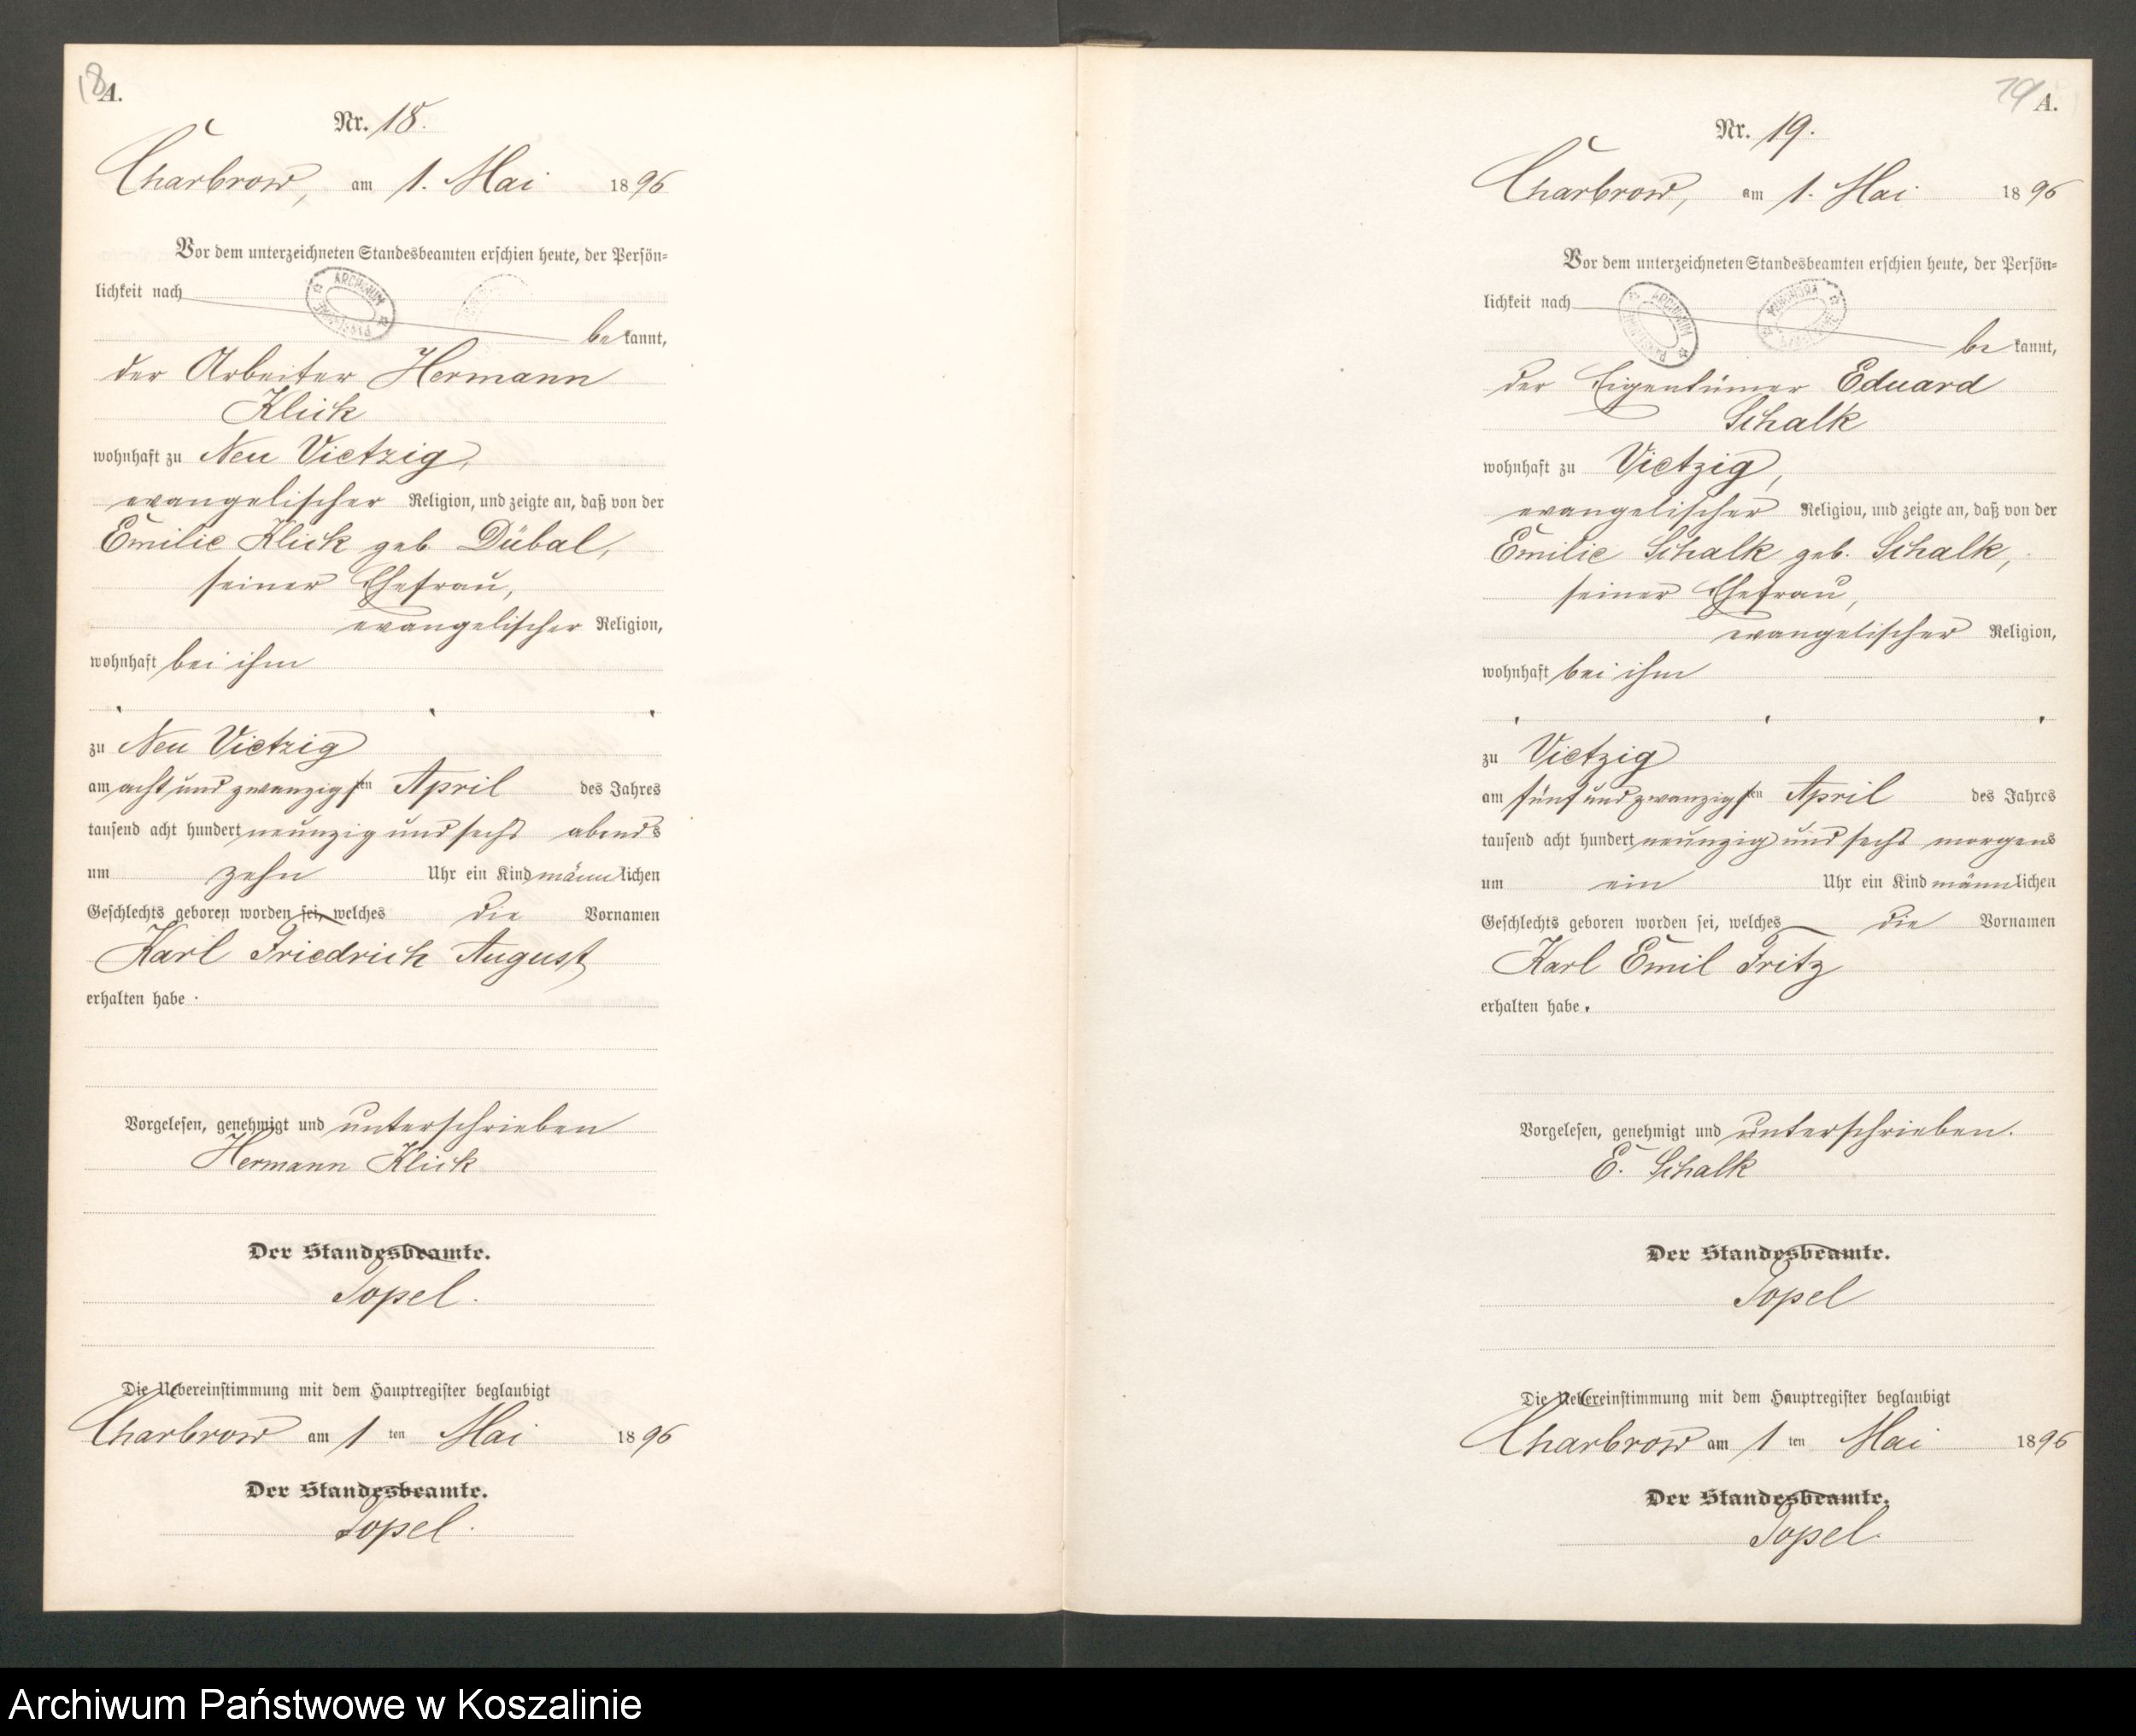 18
A.
Nr. 18.
Charbrow, am 1. Mai 1896
Vor dem unterzeichneten Standesbeamten erschien heute, der Persön-
lichkeit nach
ARCHIWUM
be kannt,
der Arbeiter Hermann
Klick
wohnhaft zu Neu Vietzig,
evangelischer Religion, und zeigte an, daß von der
Emilie Klick geb Dübal,
seiner Ehefrau,
evangelischer Religion,
wohnhaft bei ihm
zu Neu Vietzig
am acht und zwanzigsten April des Jahres
tausend acht hundert neunzig und sechs abends
um zehn Uhr ein Kind männlichen
Geschlechts geboren worden sei, welches die Vornamen
Karl Friedrich August
erhalten habe.
Vorgelesen, genehmigt und unterschrieben
Hermann Klick
Der Standesbeamte.
Topel.
Die Uebereinstimmung mit dem Hauptregister beglaubigt
Charbrow am 1 ten Mai 1896
Der Standesbeamte.
Topel.
19
A.
Nr. 19.
Charbrow, am 1. Mai 1896
Vor dem unterzeichneten Standesbeamten erschien heute, der Persön-
lichkeit nach
ARCHIWUM
be kannt,
der Eigentümer Eduard
Schalk
wohnhaft zu Vietzig,
evangelischer Religion, und zeigte an, daß von der
Emilie Schalk geb. Schalk,
seiner Ehefrau,
evangelischer Religion,
wohnhaft bei ihm
zu Vietzig
am fünf und zwanzigsten April des Jahres
tausend acht hundert neunzig und sechs morgens
um ein Uhr ein Kind männlichen
Geschlechts geboren worden sei, welches die Vornamen
Karl Emil Fritz
erhalten habe.
Vorgelesen, genehmigt und unterschrieben.
E. Schalk
Der Standesbeamte.
Topel
Die Uebereinstimmung mit dem Hauptregister beglaubigt
Charbrow am 1 ten Mai 1896
Der Standesbeamte.
Topel.
Archiwum Państwowe w Koszalinie